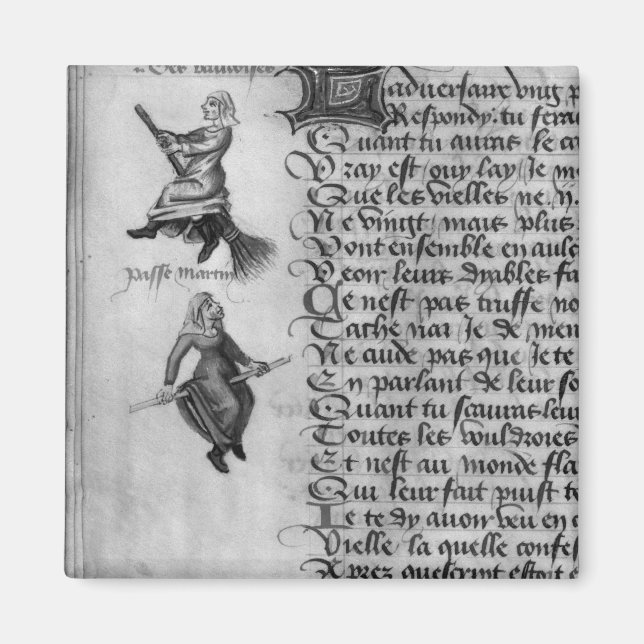 Des vaudoises
passe martin
Ladversaire vng p
Respondy: tu ferai
Quant tu auras le ca
Vray est ouy lay Je me
Que les vielles ne. ij.
Ne vingt mais plus
Vont ensemble en aulc
Veoir leurs dyables fa
Ce nest pas truffe no
Tache nai Je de men
Ne cude pas que Je te
En parlant de leur so
Quant tu scauras leur
Toutes les vouldroies
Et nest au monde fla
Qui leur fait puist te
Je te dy auoir veu en c
Vielle la quelle confes
Aprez quescript estoit e